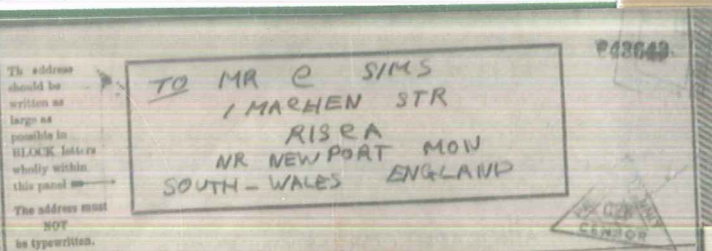 Th address
should be
written as
large as
possible in
BLOCK letters
wholly within
this panel
The address must
NOT
be typewritten.
TO MR C SIMS
1 MACHEN STR
RISCA
NR NEWPORT MON
SOUTH-WALES ENGLAND
CENSOR